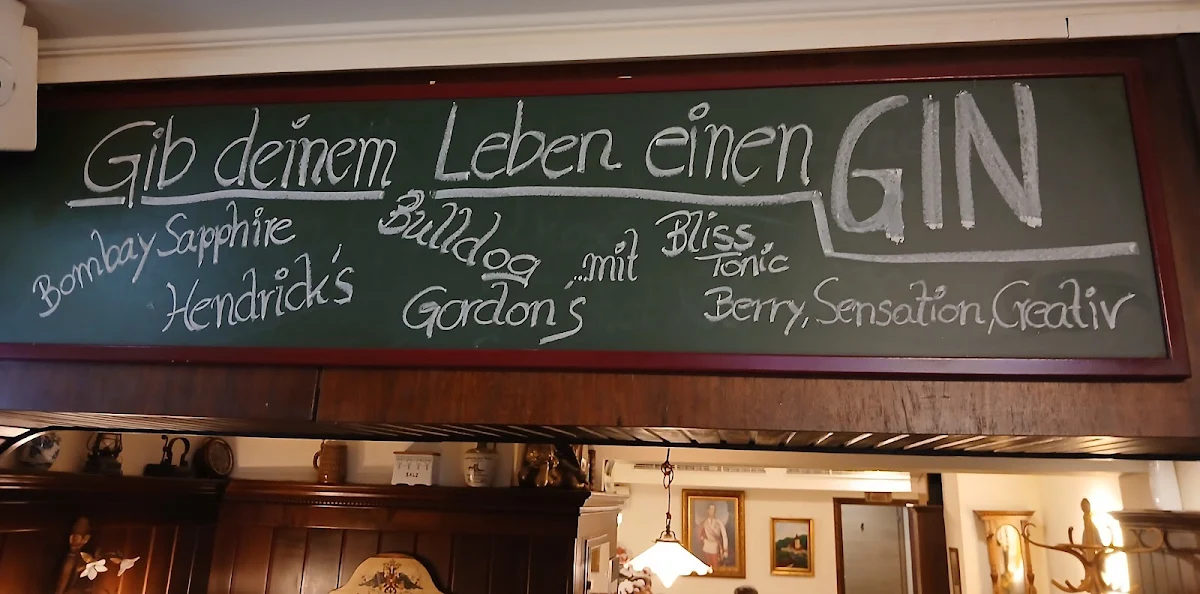 Gib deinem Leben einen GIN
Bombay Sapphire
Hendrick's
Bulldog
Gordon's
...mit Bliss
Tonic
Berry, Sensation, Creativ
SALZ